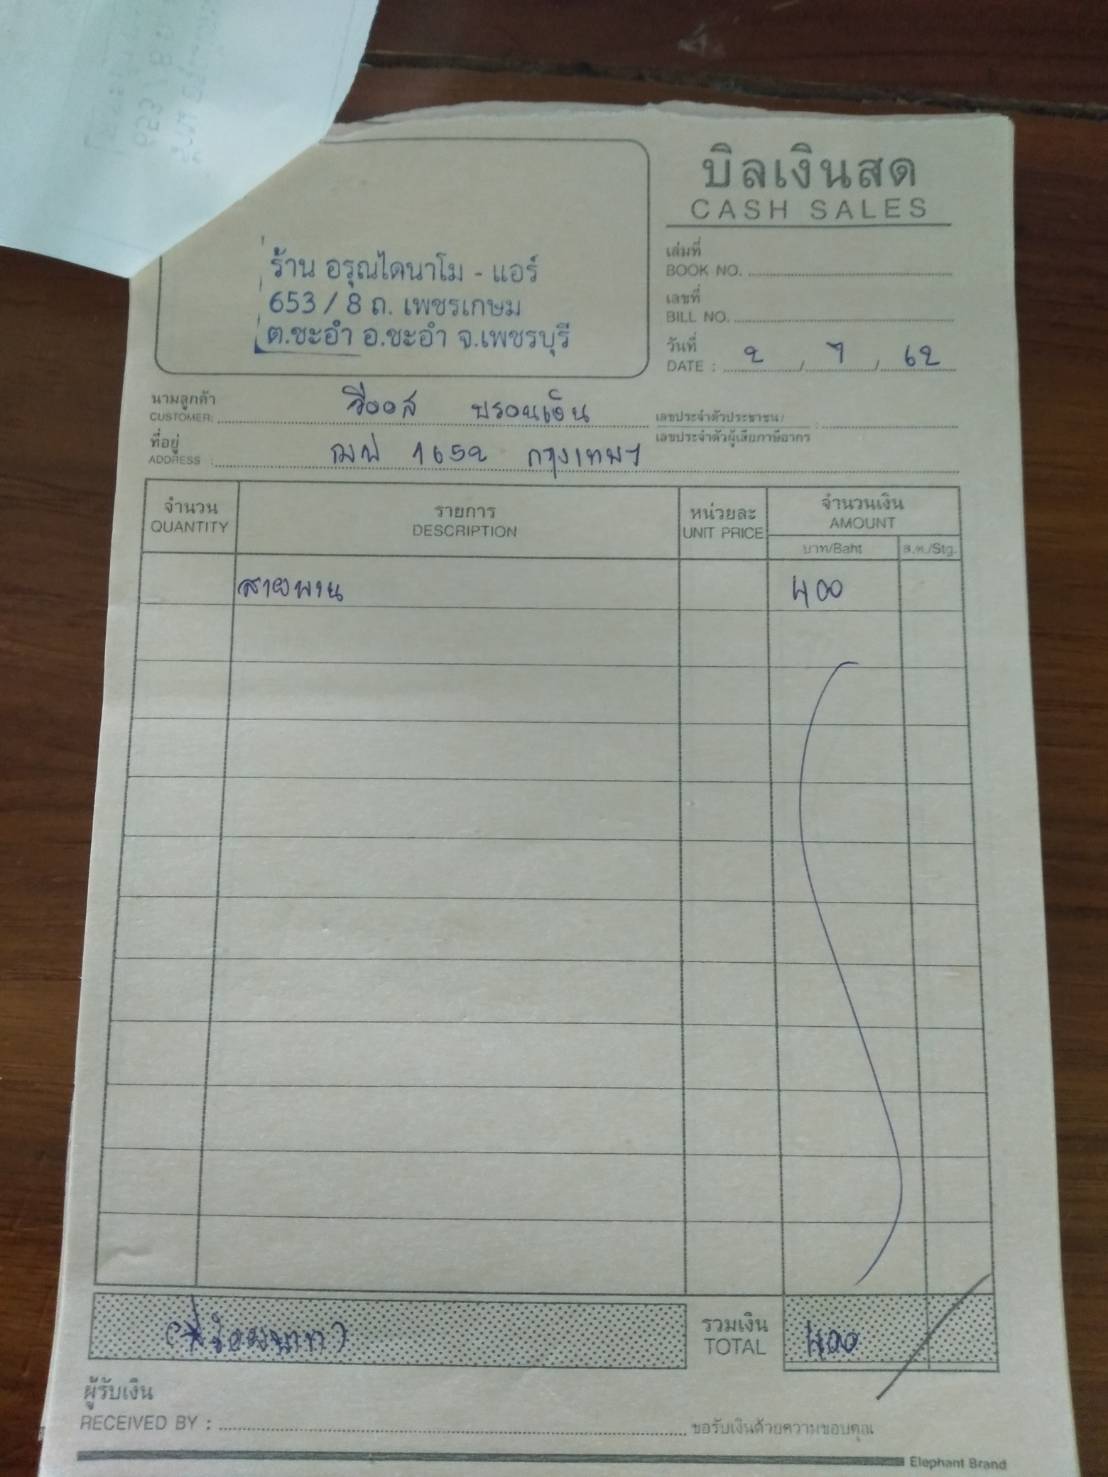 บิลเงินสด
CASH SALES
ร้าน อรุณไดนาโม - แอร์
653 / 8 ถ. เพชรเกษม
ต.ชะอำ อ.ชะอำ จ.เพชรบุรี
เล่มที่
BOOK NO.
เลขที่
BILL NO.
วันที่
DATE : ๒ / 7 / ๖๒
นามลูกค้า
CUSTOMER:
เลขประจำตัวประชาชน/
เลขประจำตัวผู้เสียภาษีอากร :
ที่อยู่
ADDRESS : 165๒ กรุงเทพฯ
จำนวน รายการ หน่วยละ จำนวนเงิน
QUANTITY DESCRIPTION UNIT PRICE AMOUNT
บาท/Baht ส.ต./Stg.
สายพาน 400
(สี่ร้อยบาท) รวมเงิน 400
TOTAL
ผู้รับเงิน
RECEIVED BY : ขอรับเงินด้วยความขอบคุณ
Elephant Brand